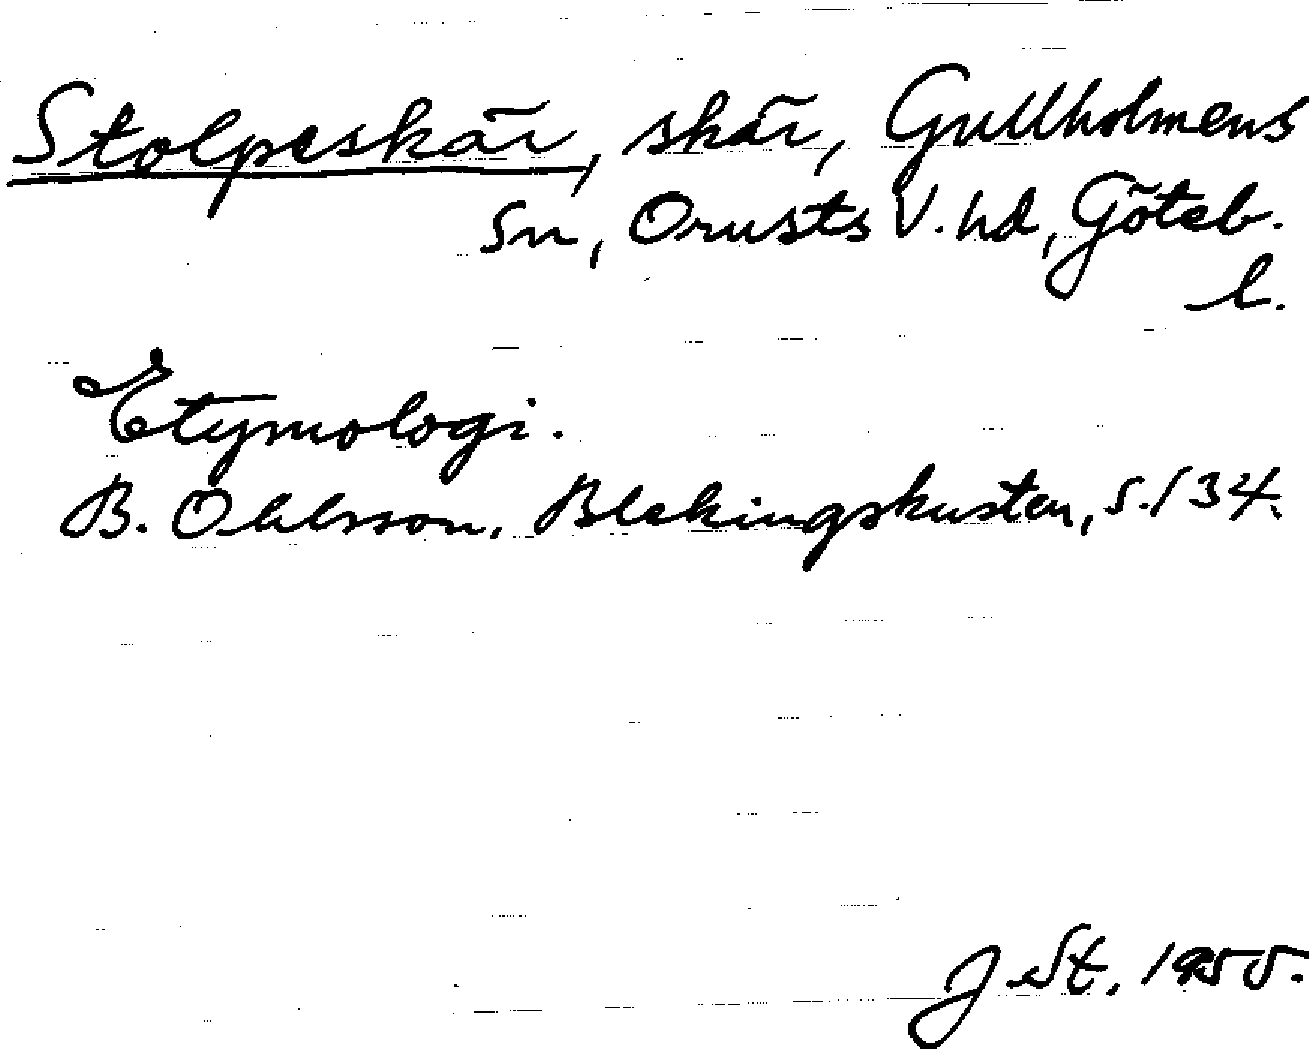 Stolpeskär, skär, Gullholmens
Sn, Orusts V. hd, Göteb.
l.
Etymologi.
B. Ohlsson, Blekingskusten, s. 134.
J. St. 1955.